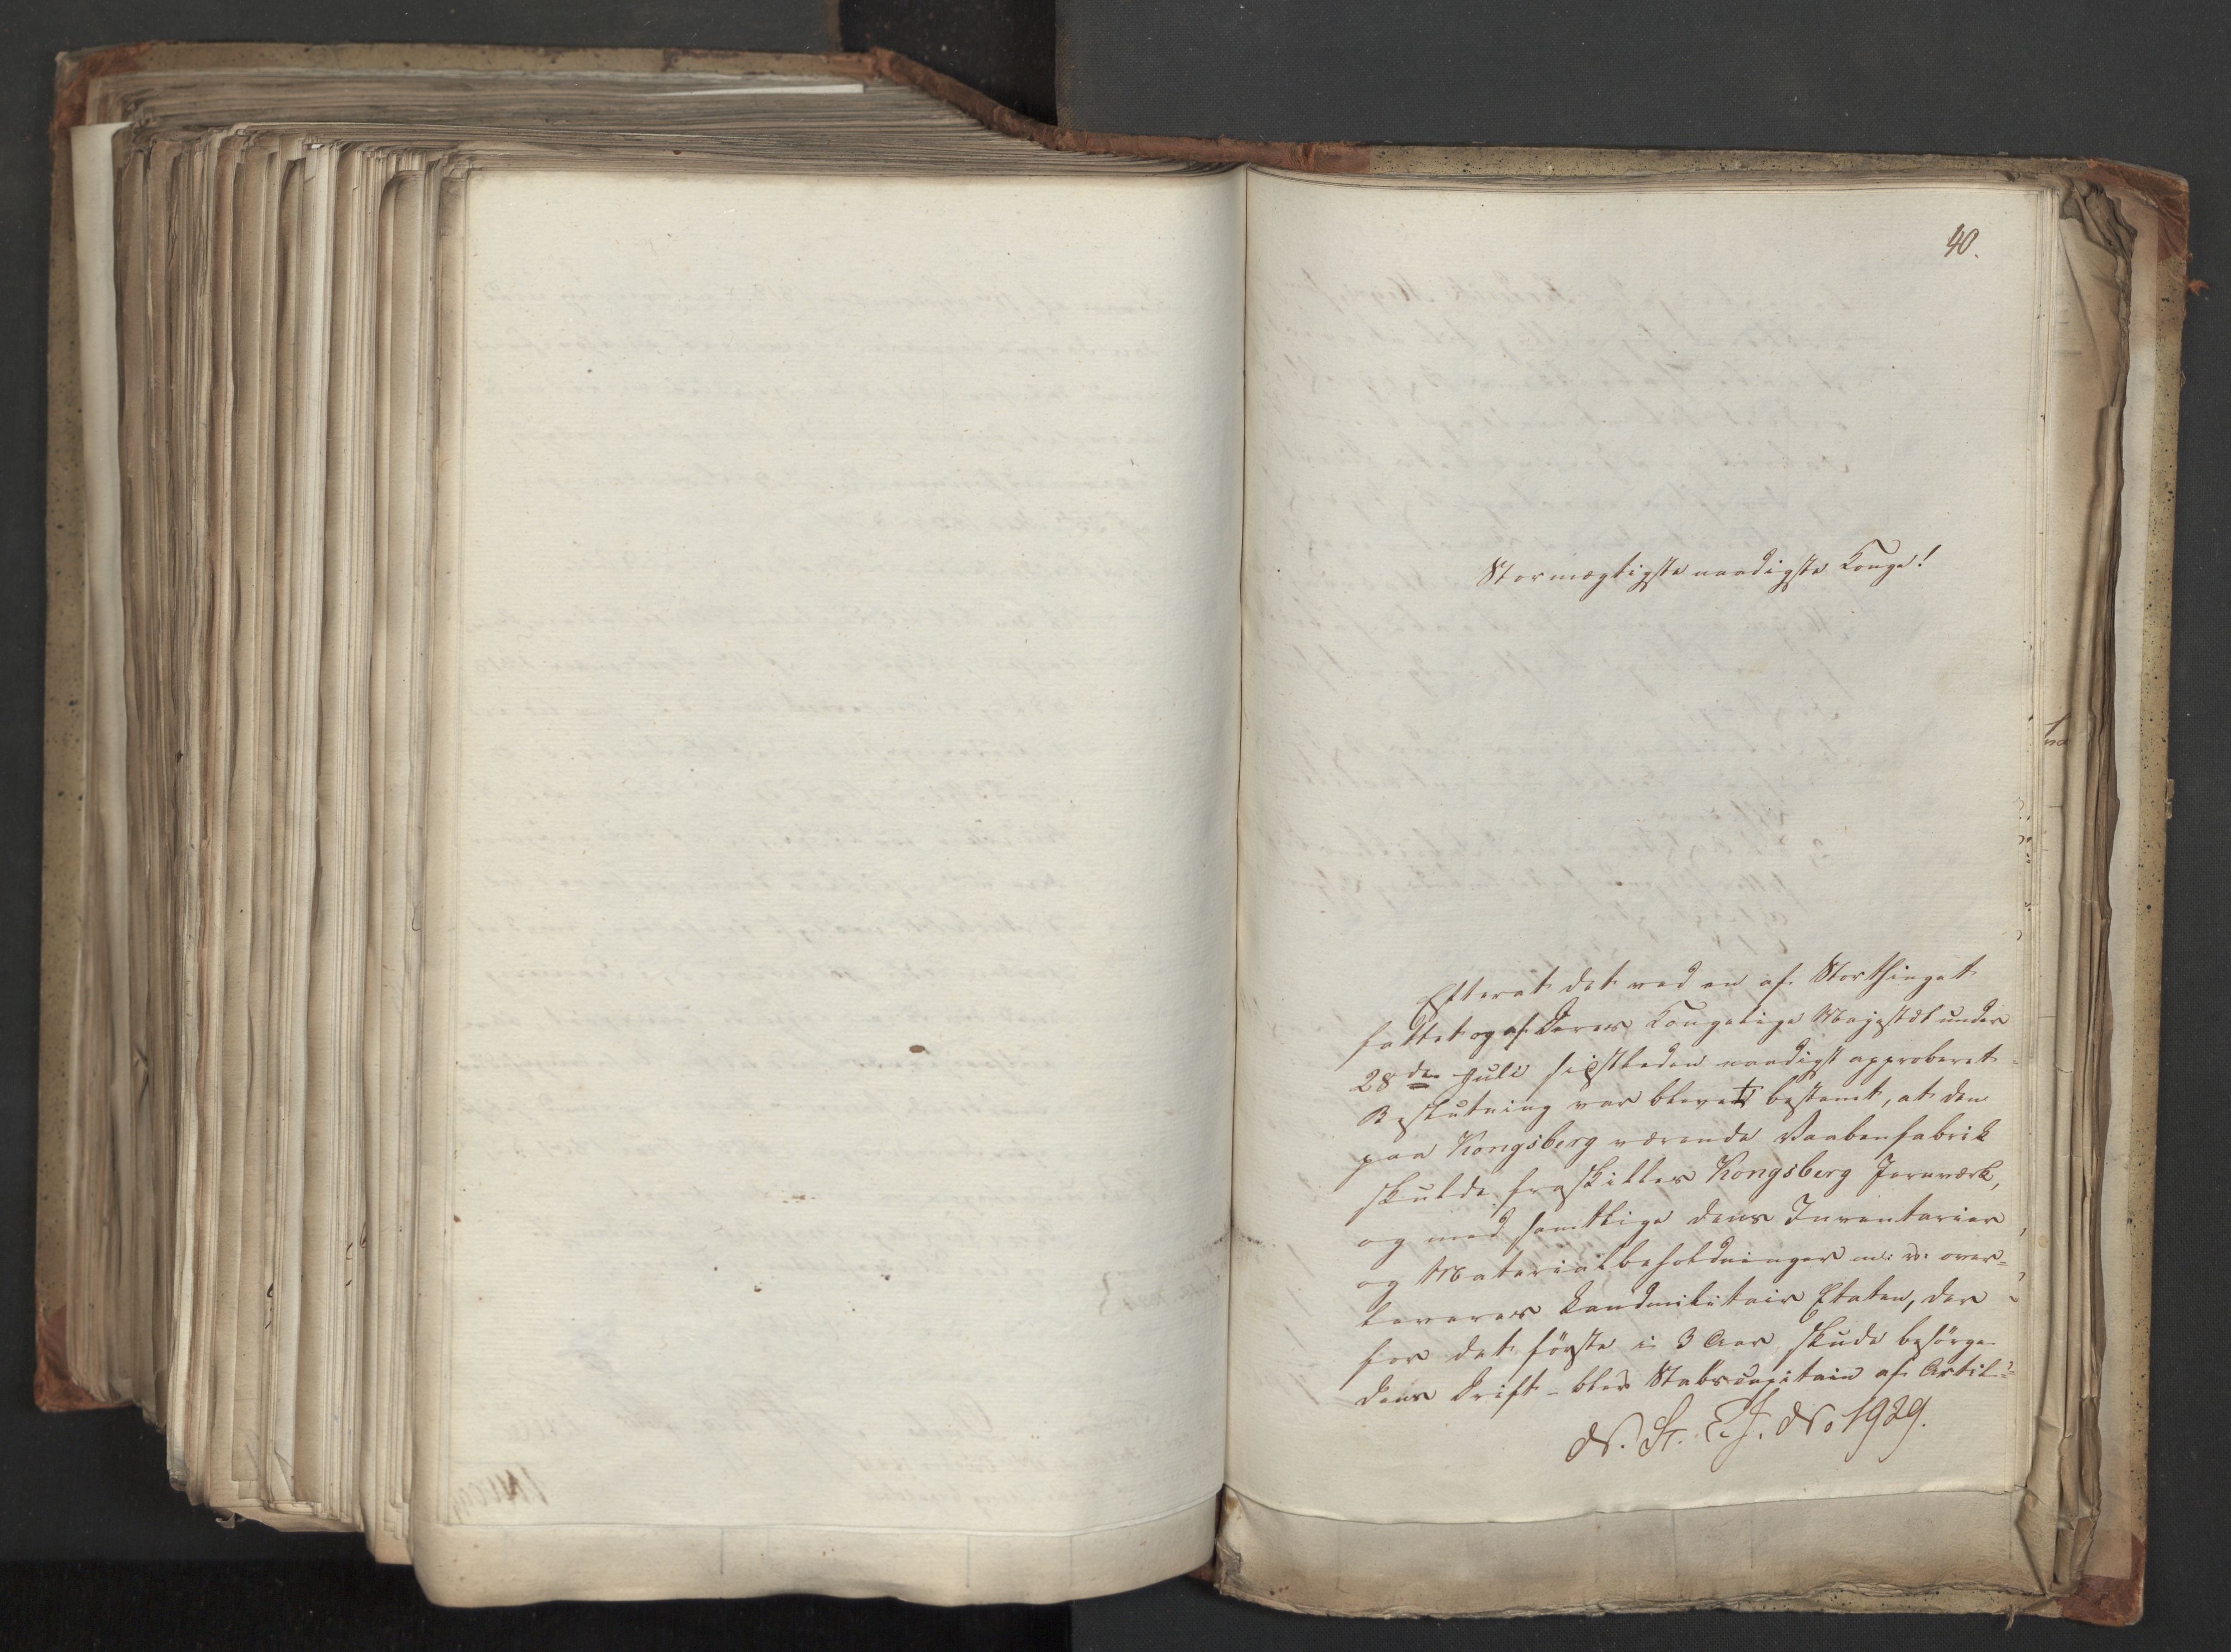 40.
Stormægtigste naadigste Konge!
Efterat det ved en af Storthinget
fattet og af Deres Kongelige Majestæt under
28de Juli sidstleden naadigst approberet
Beslutning var blevet bestemt, at den
paa Kongsberg værende Vaabenfabrik
skulde fraskilles Kongsberg Jernværk,
og med samtlige dens Inventarier
og Materialbeholdninger m: v: over=
leveres Landmilitair Etaten, der
for det første i 3 Aar skude besørge
dens Drift - blev Stabscapitain af Artil=
No 1929.